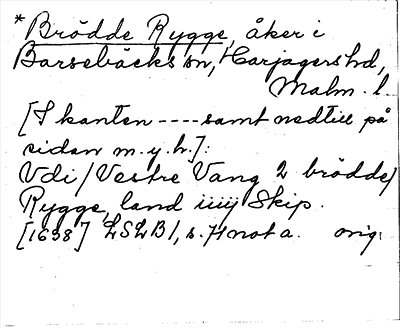 *Brödde Rygge, åker i
Barsebäcks sn, Harjagers hd,
Malm. l.
[I kanten ---- samt nedtill på
sidan m. y. h.]:
Vdi / Vestre Vang 2 brödde /
Rygge, land iiij Skip.
[1638] LSLB 1, s. 71 not a. orig.